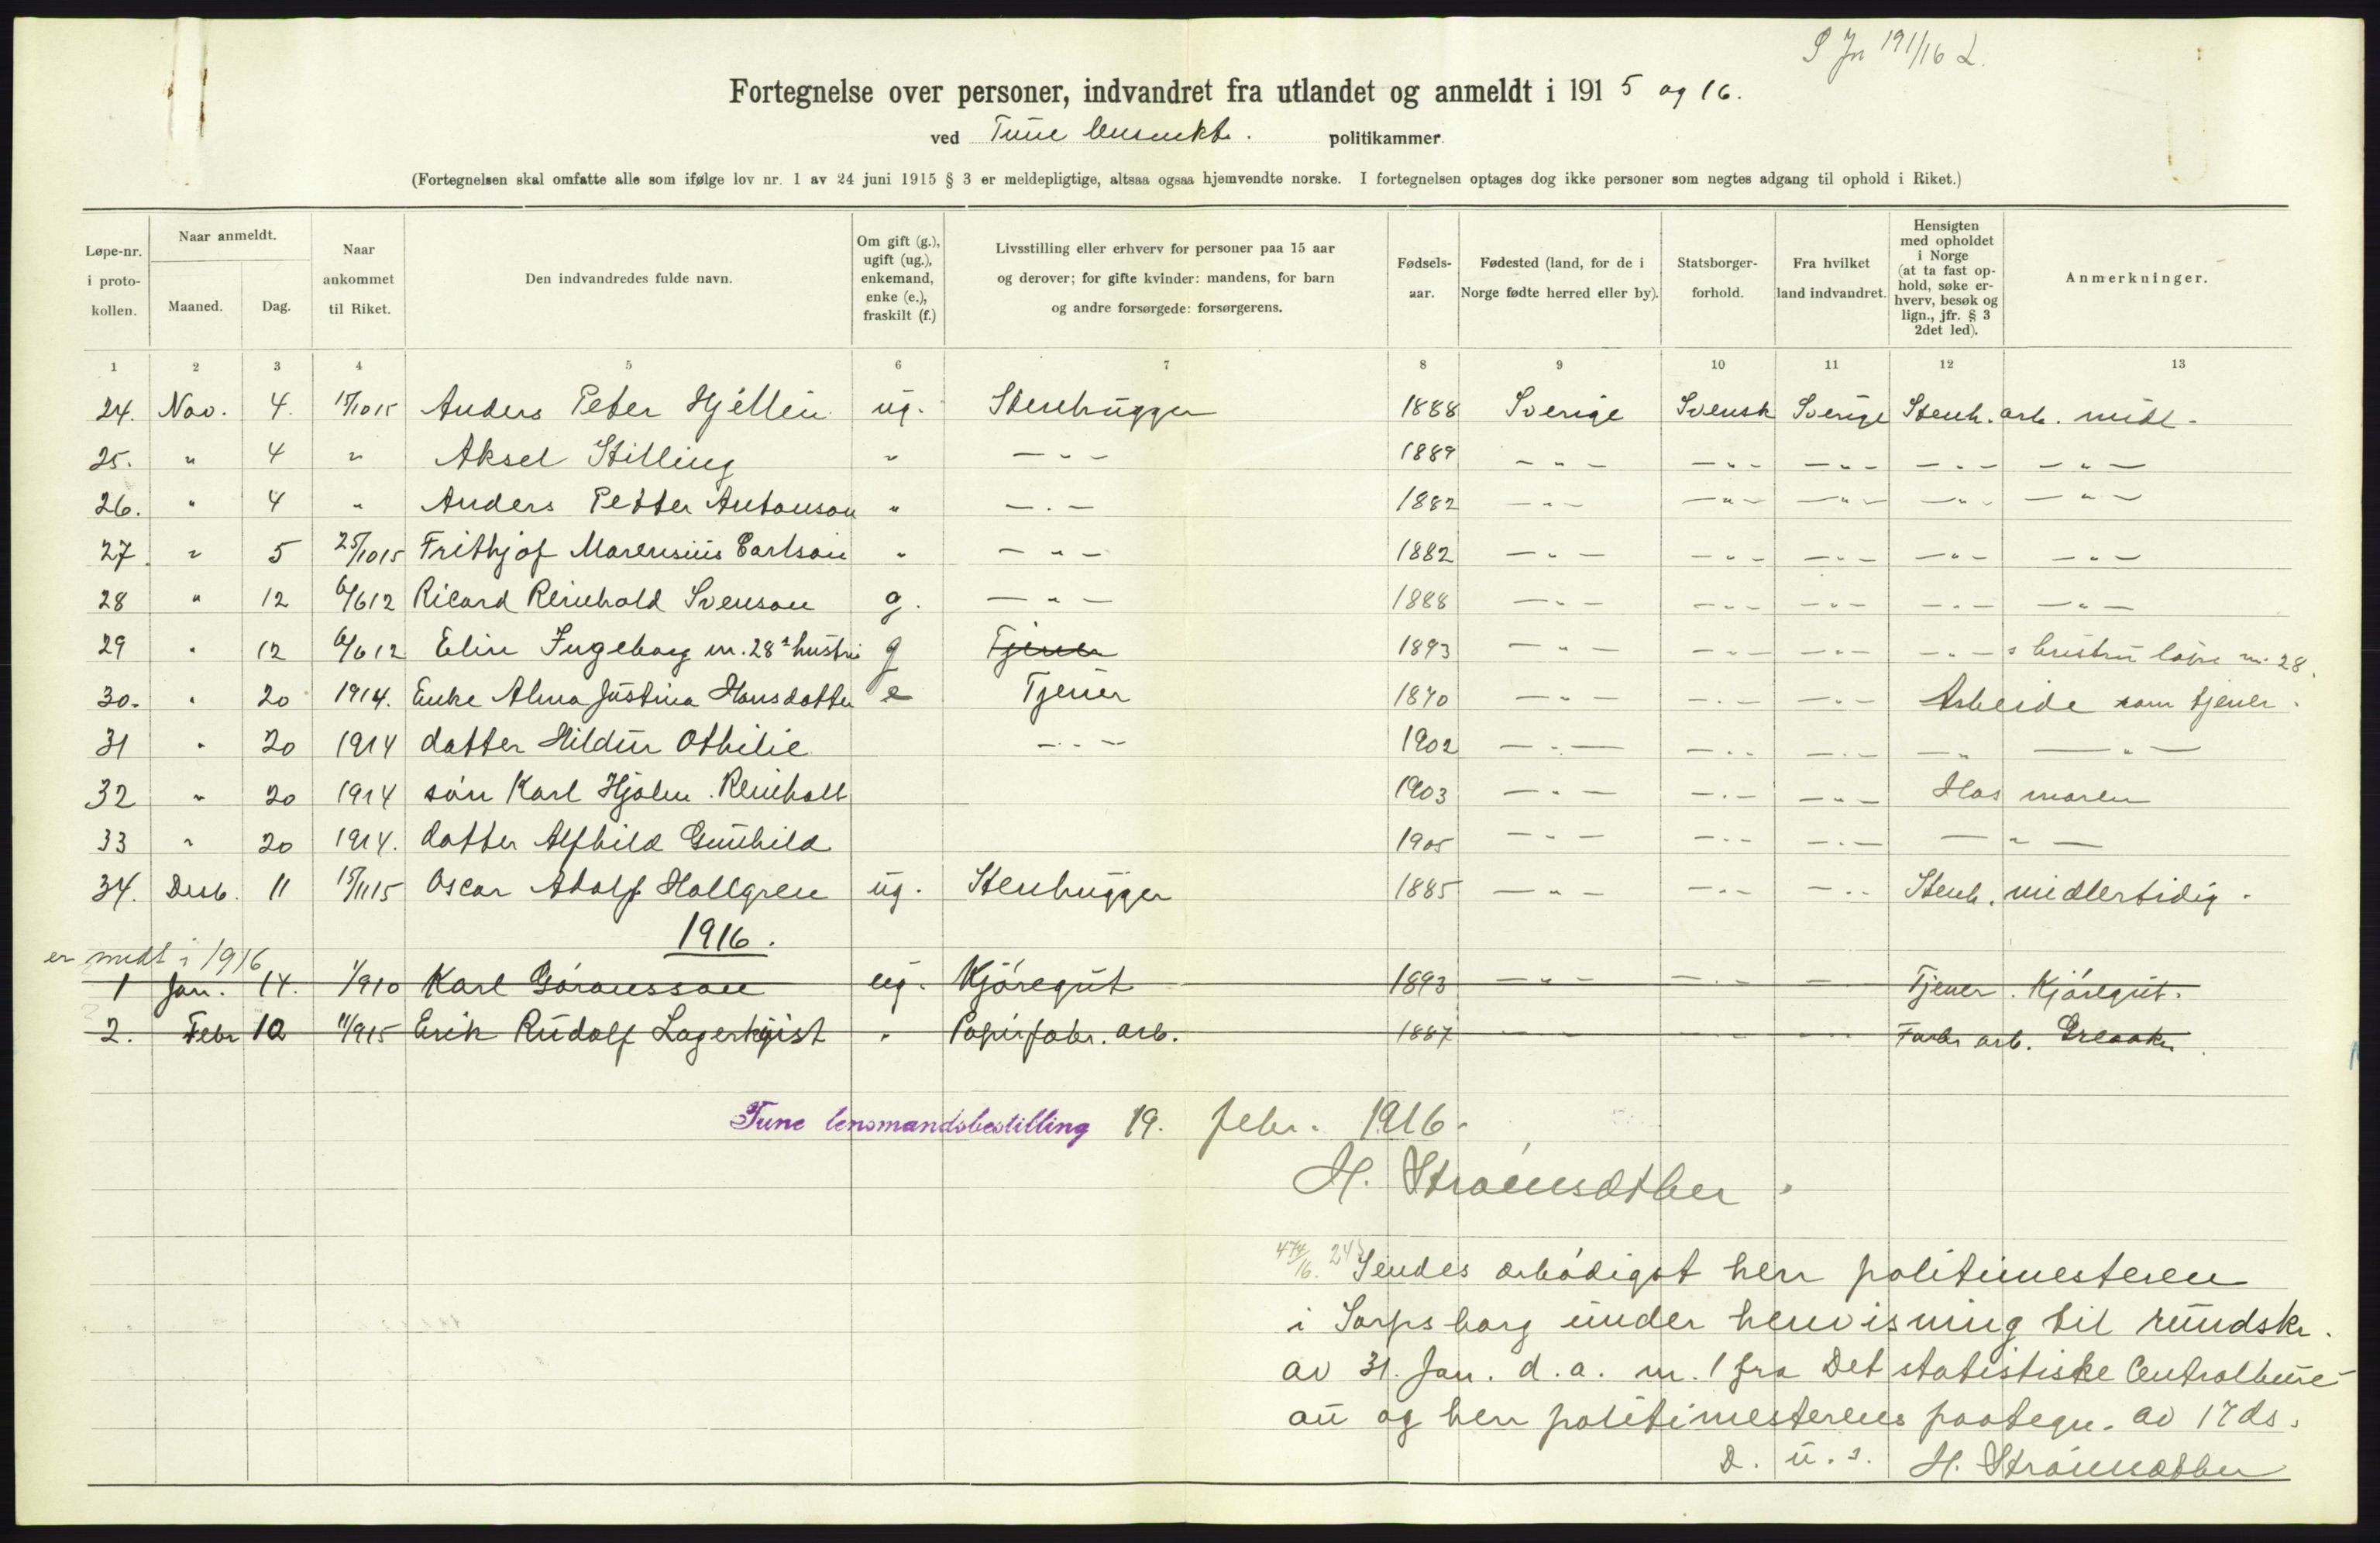 191/16
Fortegnelse over personer, indvandret fra utlandet og anmeldt i 191 5 og 16.
ved Tune politikammer.
(Fortegnelsen skal omfatte alle som ifølge lov nr. 1 av 24 juni 1915 § 3 er meldepligtige, altsaa ogsaa hjemvendte norske. I fortegnelsen optages dog ikke personer som negtes adgang til ophold i Riket.)
Løpe-nr. i proto-kollen. Naar anmeldt. Maaned. Dag. Naar ankommet til Riket. Den indvandredes fulde navn. Om gift (g.), ugift (ug.), enkemand, enke (e.), fraskilt (f.) Livsstilling eller erhverv for personer paa 15 aar og derover; for gifte kvinder: mandens, for barn og andre forsørgede: forsørgerens. Fødsels-aar. Fødested (land, for de i Norge fødte herred eller by). Statsborger-forhold. Fra hvilket land indvandret. Hensigten med opholdet i Norge (at ta fast op-hold, søke er-hverv, besøk og lign., jfr. § 3 2det led). Anmerkninger.
1 2 3 4 5 6 7 8 9 10 11 12 13
24. Nov. 4. Anders Peter Hjellin ug. Stenhugger 1888 Sverige Svensk Sverige Stenh. arb. midl.
25. " 4 " Aksel Stilling " — " — 1889 — " — — " — — " — — " — — " —
26. " 4 " Anders Petter Antonson " — " — 1882 — " — — " — — " — — " — — " —
27. " 5 25/10 15 Frithjof Marensius Carlson " — " — 1882 — " — — " — — " — — " — — " —
28 " 12 6/6 12 Ricard Reinhold Svenson g. — " — 1888 — " — — " — — " — — " — — " —
29 " 12 6/6 12 Elin Ingeborg nr. 28s hustru g Tjener 1893 — " — — " — — " — — " — hustru løpe nr. 28.
30. " 20 1914. Enke Alma Justina Hansdatter e Tjener 1870 — " — — " — — " — Arbeide som tjener.
31 " 20 1914 datter Hildur Othilie — " — 1902 — " — — " — — " — — " — " —
32 " 20 1914 søn Karl Hjalm. Reinholt 1903 — " — — " — — " — Hos moren
33 " 20 1914. datter Alfhild Gunhild 1905 — " — — " — — " — — " —
34. Desb. 11 15/11 15 Oscar Adolf Hallgren ug. Stenhugger 1885 — " — — " — — " — Stenh. midlertidig.
1916.
er medt i 1916
1 Jan. 14. 1/9 10 Karl Göransson ug. Kjøregut 1893 — " — — " — — Tjener. Kjøregut.
2. Febr 12 11/9 15 Erik Rudolf Lagerkvist " Papirfabr. arb. 1887 — — — Fabr arb. Greaaker.
Tune lensmandsbestilling 19. febr. 1916.
H. Strømsæther.
474/16. Sendes ærbødigst herr politimesteren
i Sarpsborg under henvisning til rundskr.
av 31. Jan. d. a. nr. 1 fra Det statistiske Centralbure-
au og herr politimesterens paategn. av 17 ds.
D. u. s. H. Strømsæther